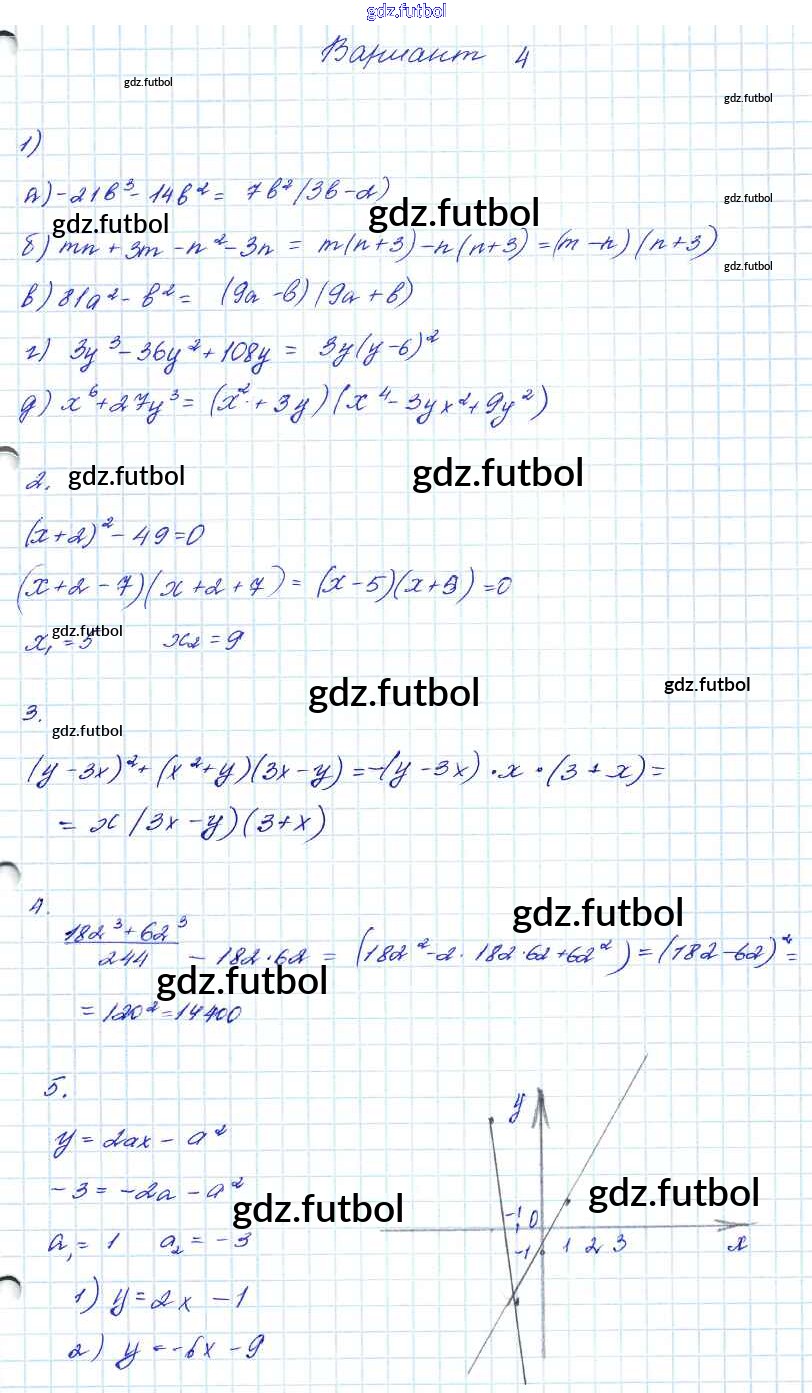 gdz.futbol
Вариант 4
gdz.futbol
gdz.futbol
1)
а) -21b³ - 14b² = 7b²(3b-2)
gdz.futbol
gdz.futbol
gdz.futbol
б) mn + 3m - n² - 3n = m(n+3) - n(n+3) = (m-n)(n+3)
gdz.futbol
в) 81a² - b² = (9a - b)(9a + b)
г) 3y³ - 36y² + 108y = 3y(y-6)²
д) x⁶ + 27y³ = (x² + 3y)(x⁴ - 3yx² + 9y²)
2.
gdz.futbol
gdz.futbol
(x+2)² - 49 = 0
(x+2-7)(x+2+7) = (x-5)(x+9) = 0
gdz.futbol
x₁ = 5 x₂ = 9
gdz.futbol
gdz.futbol
3.
gdz.futbol
(y-3x)² + (x²+y)(3x-y) = -(y-3x)·x·(3+x) =
= x(3x-y)(3+x)
4.
gdz.futbol
(182³ + 62³)/244 - 182·62 = (182² - 2·182·62 + 62²) = (182-62)² =
gdz.futbol
= 120² = 14400
5.
y = 2ax - a²
-3 = -2a - a²
gdz.futbol
gdz.futbol
a₁ = 1 a₂ = -3
1) y = 2x - 1
2) y = -6x - 9
y
-1 0
-1 1 2 3 x